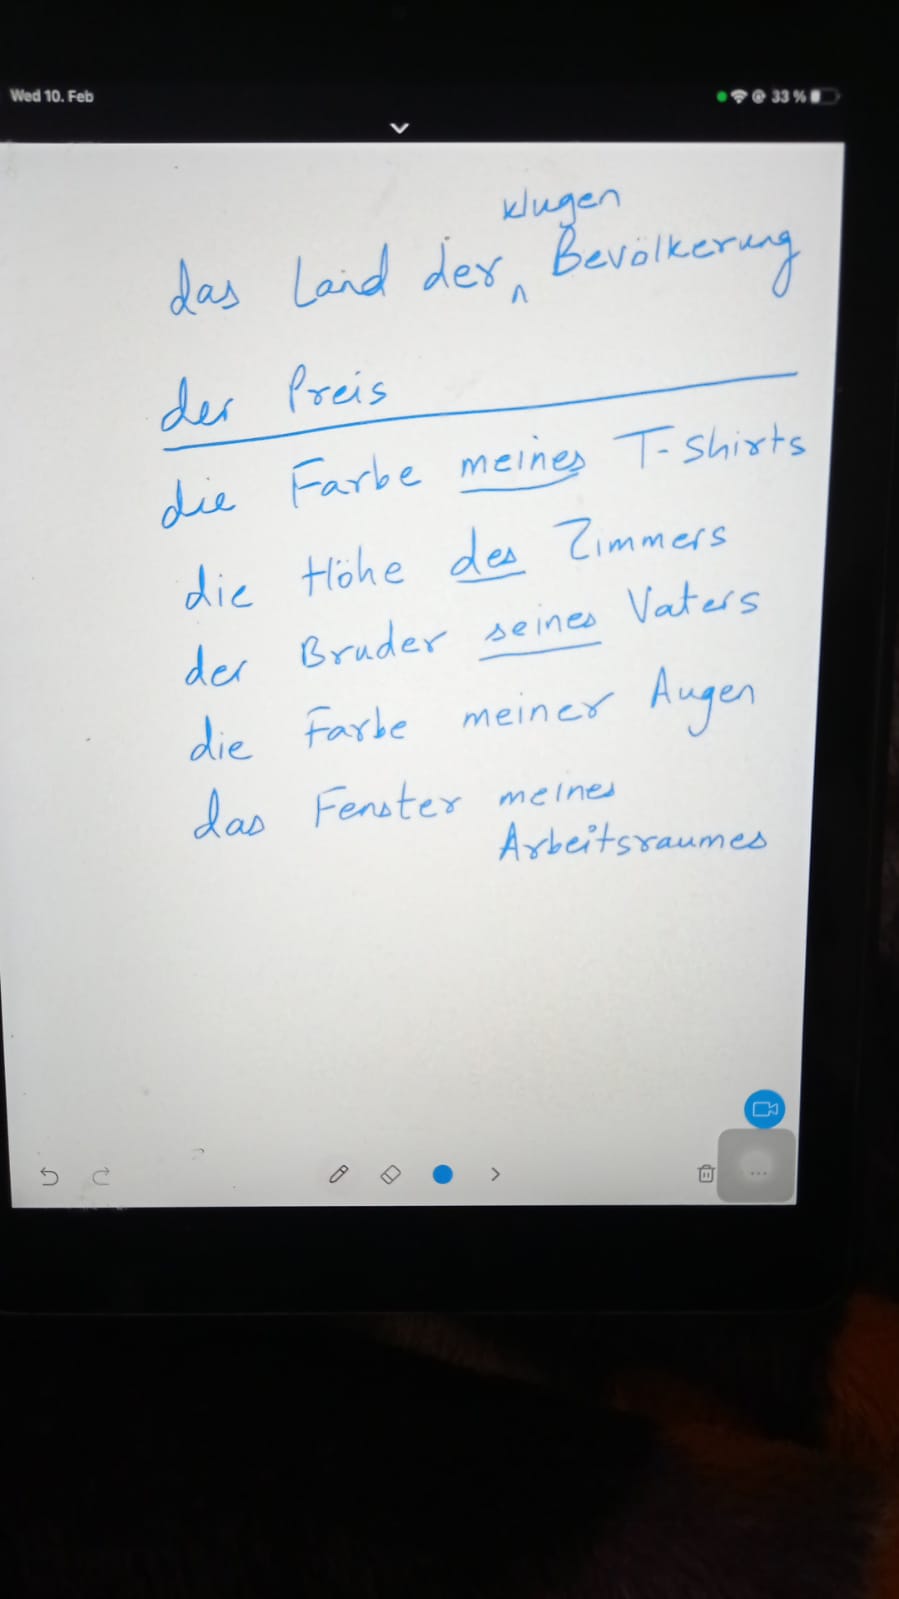 Wed 10. Feb
33 %
klugen
das Land der ^ Bevölkerung
der Preis
die Farbe meines T-Shirts
die Höhe des Zimmers
der Bruder seines Vaters
die Farbe meiner Augen
das Fenster meines
Arbeitsraumes